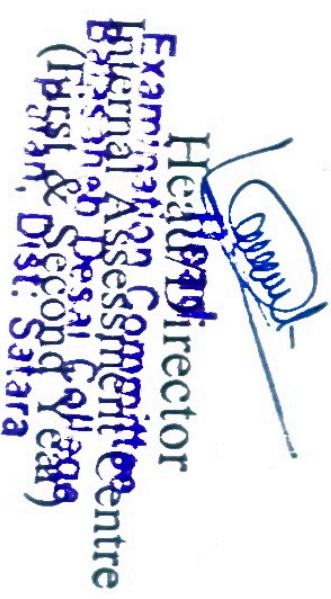 Head/Director
Internal Assessment Centre
(First & Second Year)
Head
Examination Committee
Balasaheb Desai College
Patan, Dist. Satara